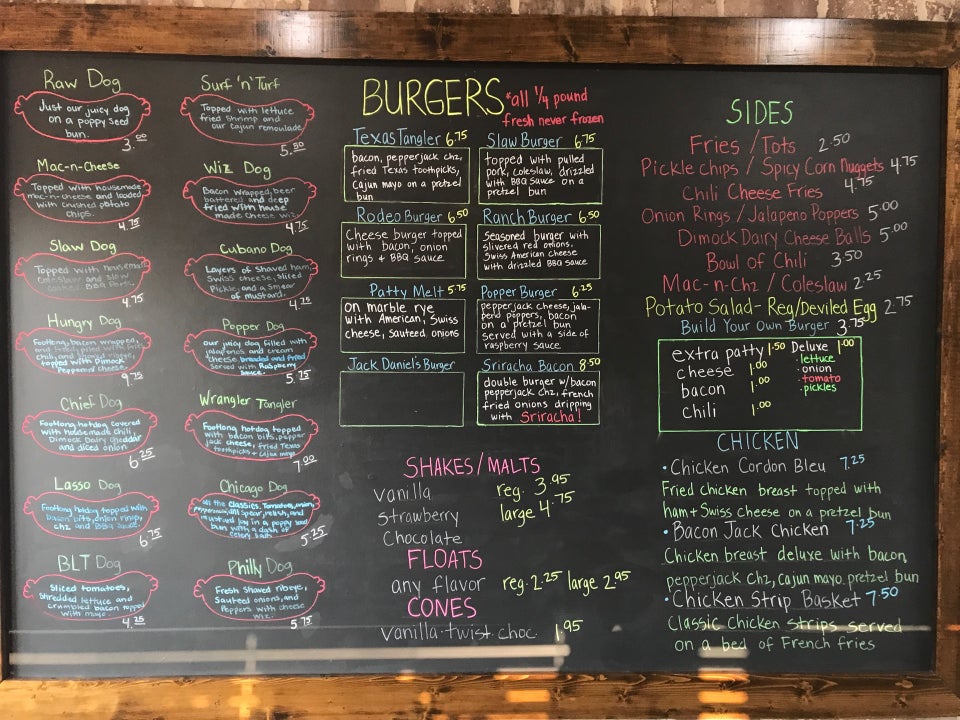 Raw Dog
Just our juicy dog
on a poppy seed
bun.
3.00
Mac-n-Cheese
Topped with housemade
mac-n-cheese and loaded
with crushed potato
chips.
4.75
Slaw Dog
Topped with housemade
Coleslaw and slow
BBQ Pork.
4.75
Hungry Dog
Footlong, bacon wrapped,
topped with Dimock
Peppercorn Cheese.
9.75
Chief Dog
Footlong hotdog covered
with housemade chili,
Dimock Dairy cheddar
and diced onion
6.25
Lasso Dog
Footlong hotdog topped with
bacon bits, onion rings,
chz and BBQ Sauce.
6.75
BLT Dog
Sliced tomatoes,
Shredded lettuce and
crumbled bacon topped
with mayo.
4.25
Surf 'n' Turf
Topped with lettuce
fried Shrimp and
our Cajun remoulade.
5.50
Wiz Dog
Bacon wrapped, beer
battered and deep
fried with house
made Cheese wiz.
4.75
Cubano Dog
Layers of Shaved ham,
Swiss cheese, sliced
Pickle, and a Smear
of mustard.
4.75
Popper Dog
our juicy dog filled with
jalapenos and cream
cheese breaded and fried
Served with Raspberry
Sauce.
5.75
Wrangler Tangler
Footlong hotdog topped
with bacon bits, pepper
jack cheese, fried Texas
toothpicks + Cajun mayo
7.00
Chicago Dog
all the Classics. Tomatoes, onions,
pepperoncini, dill spear, relish, and
mustard lay in a poppy seed
bun with a dash of
Celery Salt.
5.25
Philly Dog
Fresh Shaved ribeye,
Sauteed onions, and
Peppers with cheese
wiz.
5.75
BURGERS
*all 1/4 pound
fresh never frozen
Texas Tangler 6.75
bacon, pepperjack chz,
fried Texas toothpicks,
Cajun mayo on a pretzel
bun
Slaw Burger 6.75
topped with pulled
pork, coleslaw, drizzled
with BBQ Sauce on a
pretzel bun
Rodeo Burger 6.50
Cheese burger topped
with bacon, onion
rings + BBQ sauce
Ranch Burger 6.50
Seasoned burger with
slivered red onions,
Swiss American cheese
with drizzled BBQ sauce
Patty Melt 5.75
on marble rye
with American, Swiss
cheese, sauteed onions
Popper Burger 6.25
pepperjack cheese, jala-
peno poppers, bacon
on a pretzel bun
served with a side of
raspberry sauce
Jack Daniel's Burger
Sriracha Bacon 8.50
double burger w/bacon
pepperjack chz, french
fried onions dripping
with Sriracha!
SHAKES/MALTS
vanilla
strawberry
Chocolate
reg. 3.95
large 4.75
FLOATS
any flavor reg. 2.25 large 2.95
CONES
vanilla-twist-choc 1.95
SIDES
Fries / Tots 2.50
Pickle Chips / Spicy Corn Nuggets 4.75
Chili Cheese Fries 4.75
Onion Rings / Jalapeno Poppers 5.00
Dimock Dairy Cheese Balls 5.00
Bowl of Chili 3.50
Mac-n-Chz / Coleslaw 2.25
Potato Salad-Reg/Deviled Egg 2.75
Build Your Own Burger 3.75
extra patty 1.50
cheese 1.00
bacon 1.00
chili 1.00
Deluxe 1.00
·lettuce
·onion
·tomato
·pickles
CHICKEN
·Chicken Cordon Bleu 7.25
Fried chicken breast topped with
ham + Swiss cheese on a pretzel bun
·Bacon Jack Chicken 7.25
Chicken breast deluxe with bacon,
pepperjack chz, cajun mayo, pretzel bun
·Chicken Strip Basket 7.50
Classic Chicken Strips served
on a bed of French fries